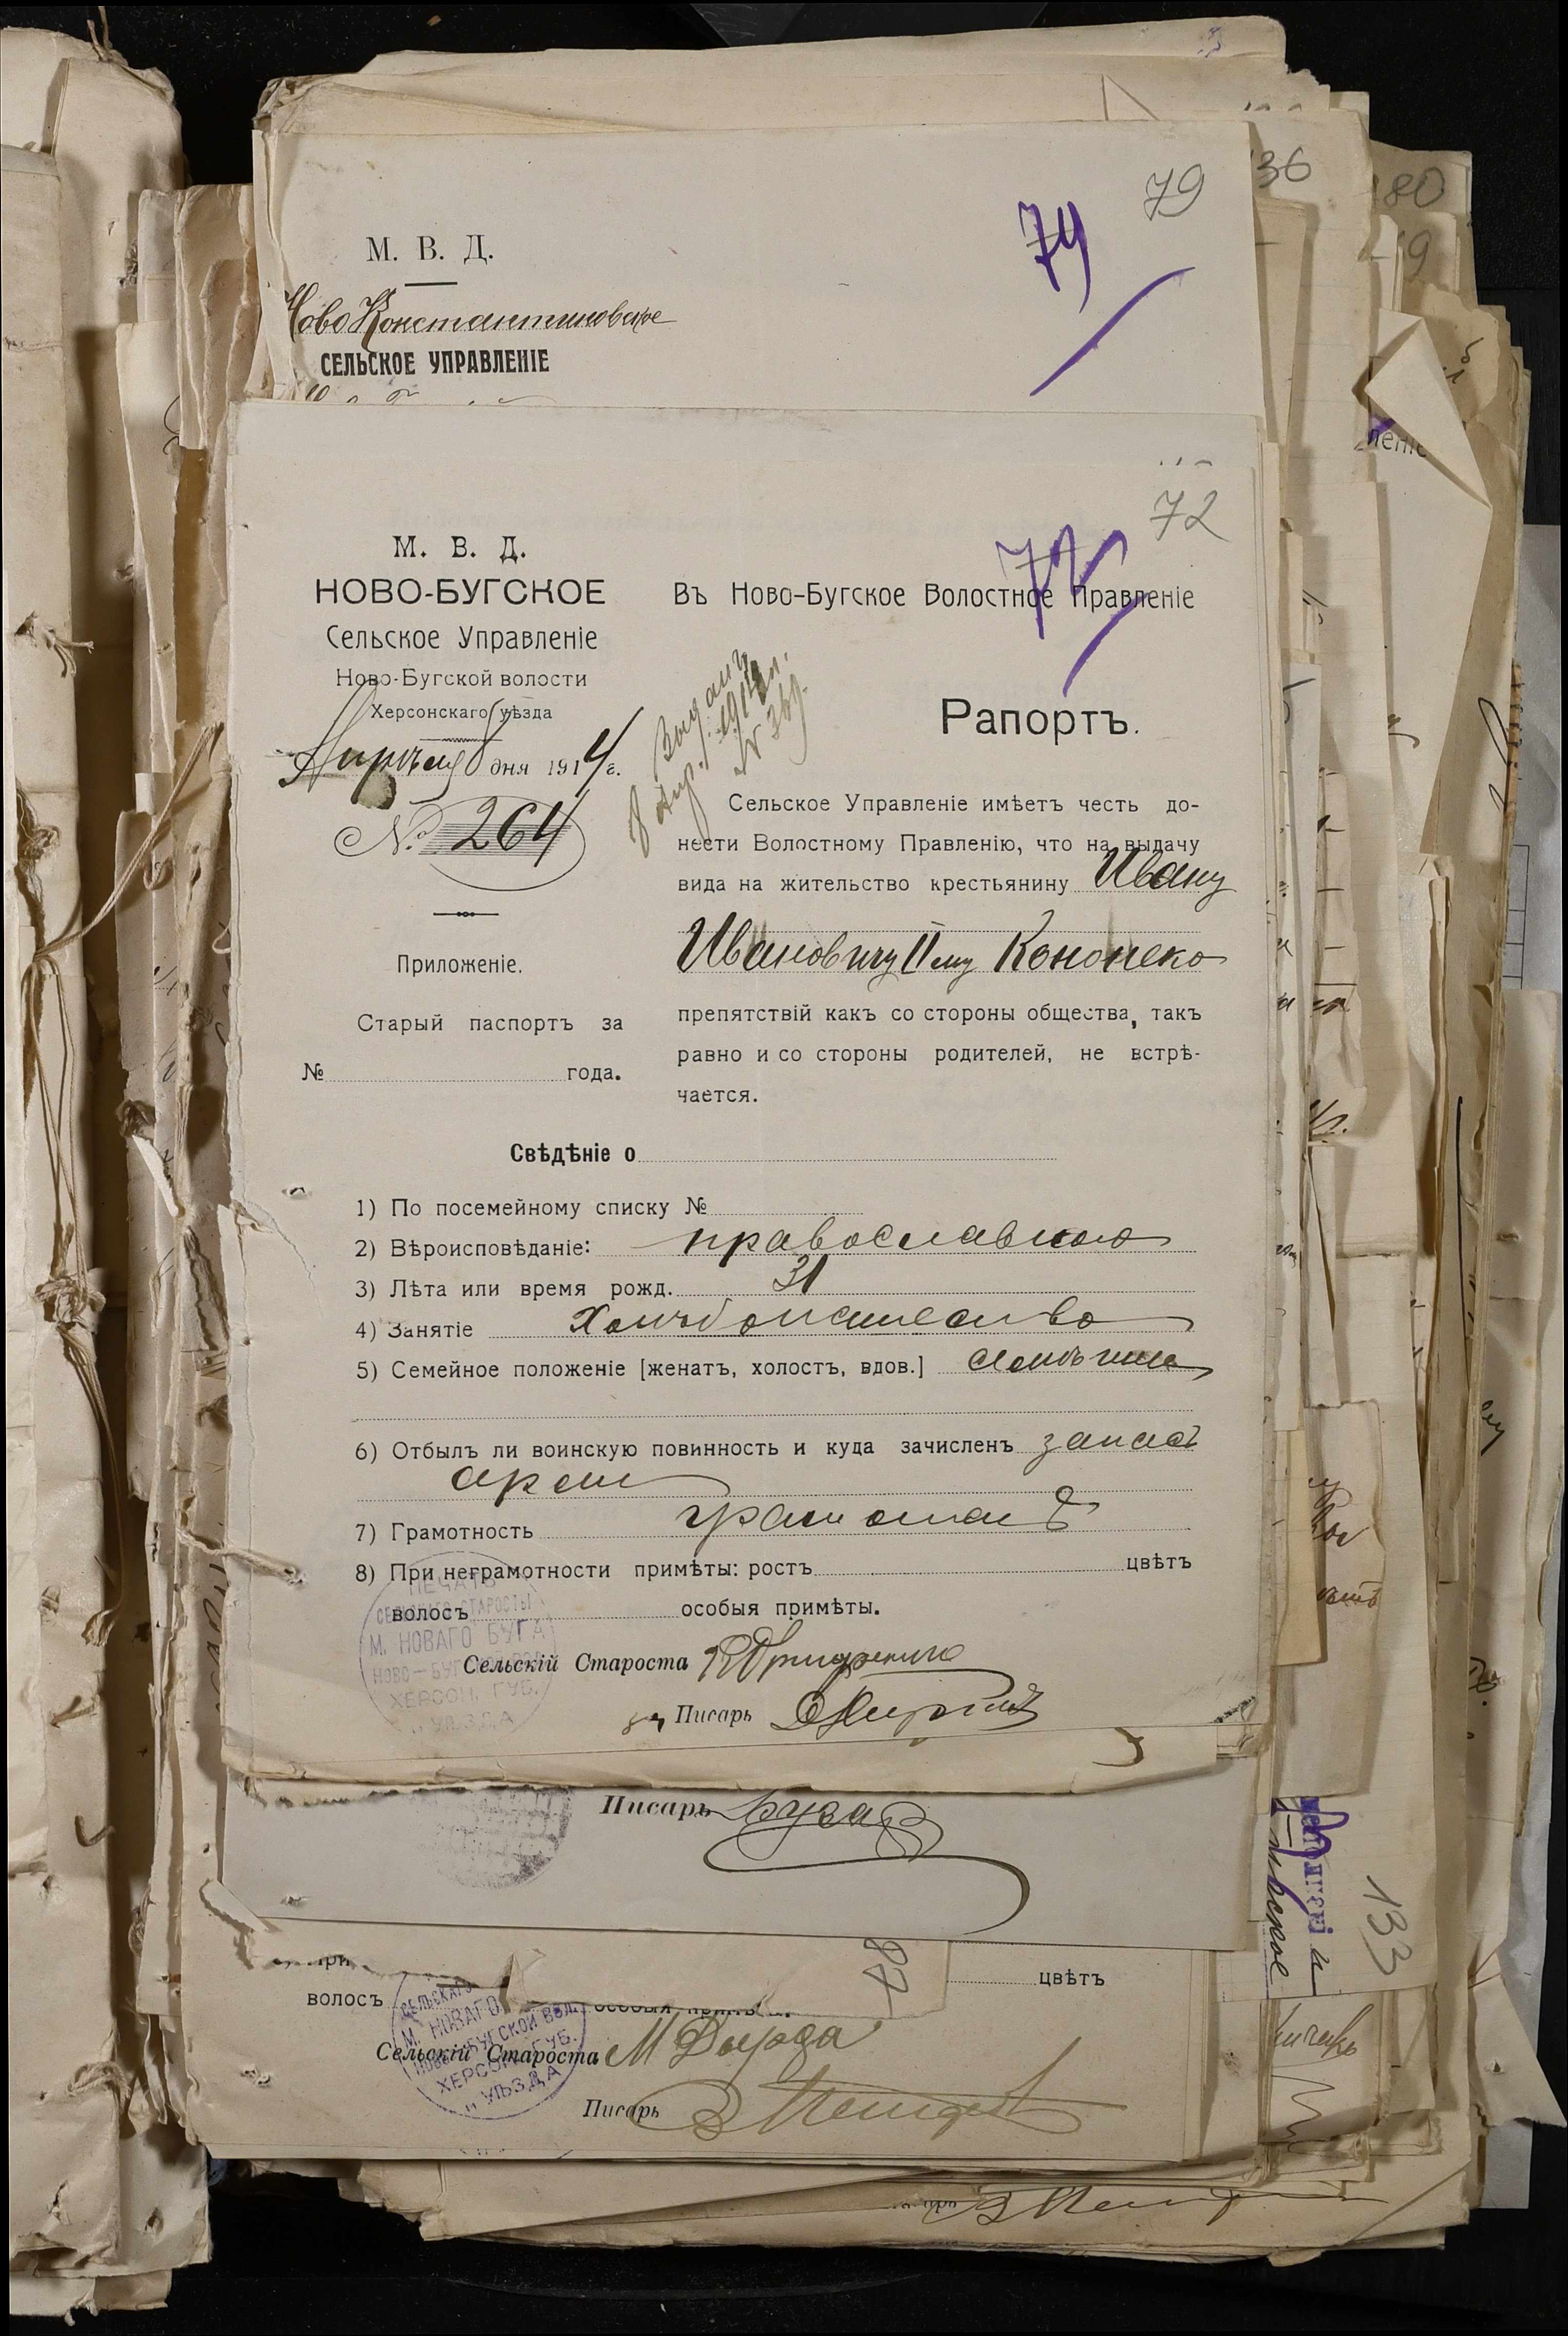 79
79
36
80
М. В. Д.
Ново Константиновское
СЕЛЬСКОЕ УПРАВЛЕНІЕ
леніе
72
72
М. В. Д.
НОВО-БУГСКОЕ
Сельское Управленіе
Ново-Бугской волости
Херсонскаго уѣзда
Апрѣля 8 дня 1914 г.
№ 264
Приложеніе.
Старый паспортъ за
№ года.
Въ Ново-Бугское Волостное Правленіе
Выданъ
8 Апр. 1914 г.
№ 369
Рапортъ.
Сельское Управленіе имѣетъ честь до-
нести Волостному Правленію, что на выдачу
вида на жительство крестьянину Ивану
Ивановичу II му Кононеко
препятствій какъ со стороны общества, такъ
равно и со стороны родителей, не встрѣ-
чается.
Свѣдѣніе о
1) По посемейному списку №
2) Вѣроисповѣданіе: православного
3) Лѣта или время рожд. 31
4) Занятіе Хлѣбопашество
5) Семейное положеніе [женатъ, холостъ, вдов.]
6) Отбылъ ли воинскую повинность и куда зачисленъ запасъ
арміи
7) Грамотность грамотенъ
8) При неграмотности примѣты: ростъ цвѣтъ
волосъ особыя примѣты.
ПЕЧАТЬ
СЕЛЬСКАГО СТАРОСТЫ
М. НОВАГО БУГА
НОВО-БУГСКОЙ ВОЛ.
ХЕРСОН. ГУБ.
" УѢЗДА
Сельскій Староста
Писарь
Писарь
87
цвѣтъ
волосъ особыя примѣты.
СЕЛЬСКАГО
М. НОВАГО
НОВО-БУГСКОЙ ВОЛ.
ХЕРСОН. ГУБ.
" УѢЗДА
Сельскій Староста М Дырда
Писарь
133